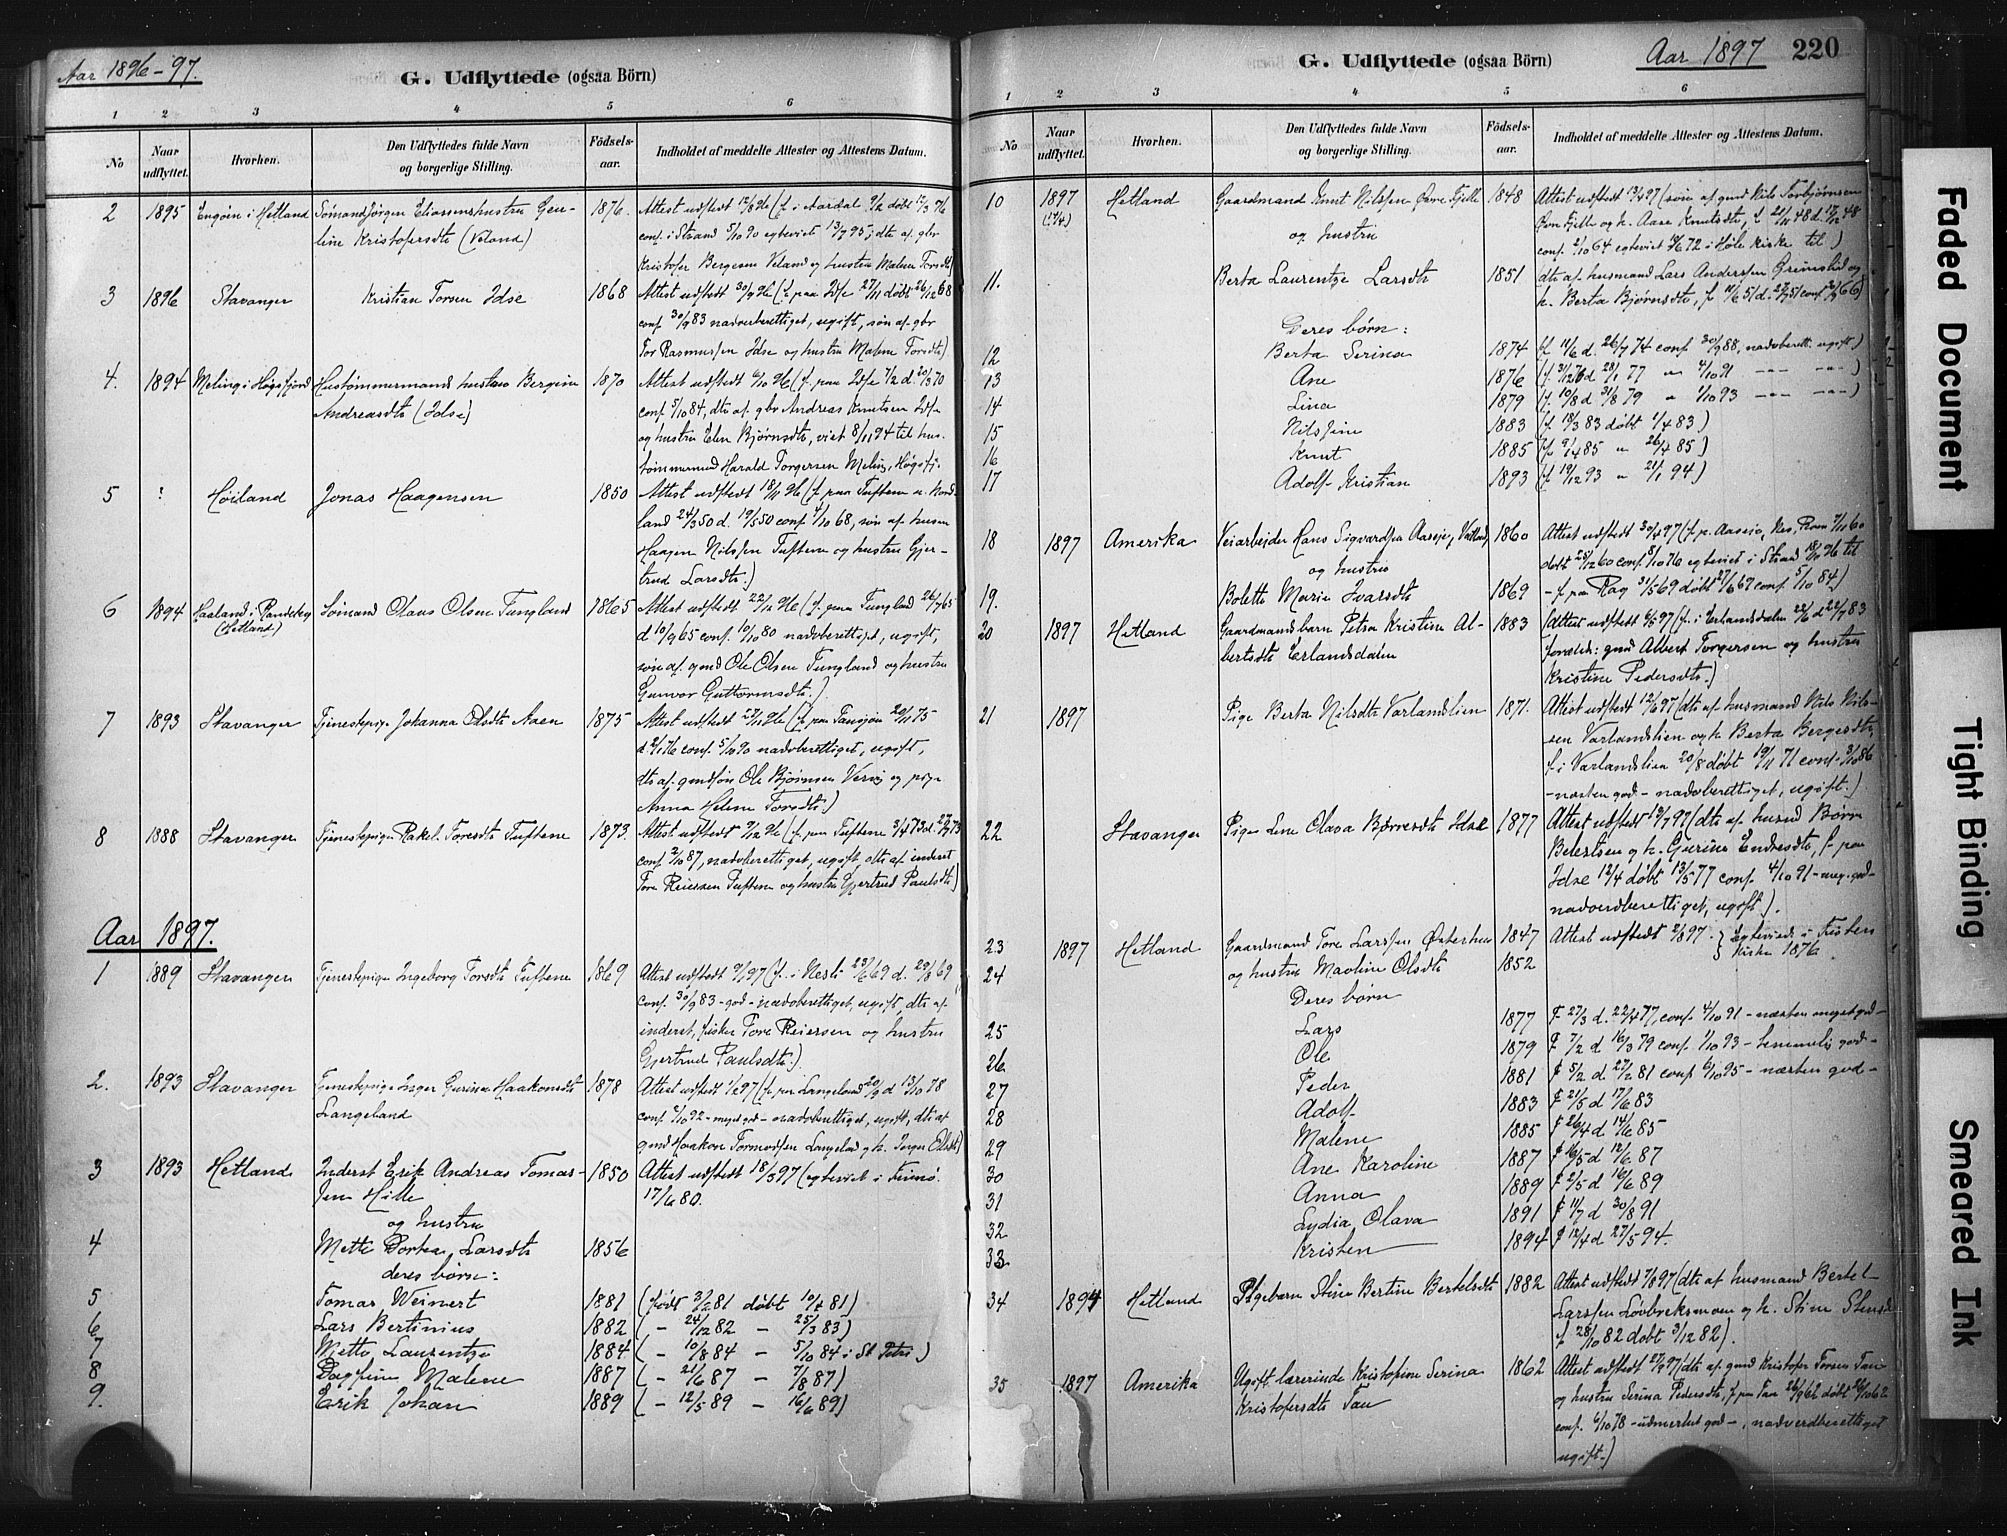 Aar 1896-97.
G. Udflyttede (ogsaa Börn)
1 2 3 4 5 6
No Naar udflyttet. Hvorhen. Den Udflyttedes fulde Navn og borgerlige Stilling. Födsels-aar. Indholdet af meddelte Attester og Attestens Datum.
2 1895 Engøen i Hetland Sømand Jørgen Eliassens hustru Gee- 1876. Attest udstedt 12/8 96 (f. i Aardal 9/2 døbt 12/3 76
line Kristofersdtr (Veland) conf. i Strand 5/10 90 egteviet 13/7 95; dtr af gbr
Kristofer Bergesen Veland og hustru Malene Torsdtr)
3 1896 Stavanger Kristian Torsen Idse 1868 Attest udstedt 30/9 96 (f. paa Idse 27/11 døbt 26/12 68
conf. 30/9 83 nadverberettiget, ugift, søn af gbr
Tor Rasmussen Idse og hustru Malene Torsdtr)
4. 1894 Meling i Høgsfjord Hustømmermands hustru Bergine 1870 Attest udstedt 6/10 96 (f. paa Idse 7/2 d. 20/3 70
Andreasdtr (Idse) conf. 5/10 84, dtr af gbr Andreas Knutsen Idse
og hustru Elen Bjørnsdtr, viet 8/11 94 til hus-
tømmermand Harald Torgersen Meling, Høgsfj.
5 ? Høiland Jonas Haagensen 1850 Attest udstedt 18/11 96 (f. paa Tuftene u. Nord-
land 24/3 50 d. 19/5 50 conf. 4/10 68, søn af husm.
Haagen Nilssen Tuftene og hustru Gjer-
trud Larsdtr.)
6 1894 Haaland i Randeberg (Hetland) Sømand Olaus Olsen Tungland 1865 Attest udstedt 22/12 96 (f. paa Tungland 26/7 65
d 10/9 65 conf. 10/10 80 nadverberettiget, ugift,
søn af gmd Ole Olsen Tungland og hustru
Gunvor Guttormsdtr.)
7 1893 Stavanger Tjenestepige Johanna Olsdtr Aasen 1875 Attest udstedt 27/11 96 (f. paa Tausjøen 20/11 75
d 2/1 76 conf. 5/10 90 nadverberettiget, ugift,
dtr af gmdsøn Ole Bjørnsen Vervig og pige
Anna Helene Torsdtr.)
8 1888 Stavanger Tjenestepige Rakel Toresdtr Tuftene 1873. Attest udstedt 9/12 96 (f. paa Tuftene 3/4 73 d. 27/4 73
conf. 2/10 87, nadverberettiget, ugift, dtr af inderst
Tore Reiersen Tuftene og hustru Gjertrud Paulsdtr)
Aar 1897.
1 1889 Stavanger Tjenestepige Ingeborg Torsdtr Tuftene 1869 Attest udstedt 9/1 97 (f. i Nesli 23/6 69 d. 29/8 69
conf. 30/9 83 - god - nadverberettiget, ugift, dtr af
inderst, fisker Tore Reiersen og hustru
Gjertrud Paulsdtr.)
2. 1893 Stavanger Tjenestepige Inger Gurine Haakonsdtr 1878 Attest udstedt 1/2 97 (f. paa Langeland 20/9 d 13/10 78
Langeland conf. 2/10 92 - meget god - nadverberettiget, ugift, dtr af
gmd Haakon Tormodsen Langeland og h. Inger Elsdtr)
3 1893 Hetland Inderst Erik Andreas Tomas- 1850 Attest udstedt 18/3 97 (egteviet i Finnø
sen Hille 17/6 80.
og hustru
4 Mette Dortea Larsdtr 1856
deres børn:
5 Tomas Weinert 1881 (født 3/2 81 døbt 10/4 81)
6 Lars Bertinius 1882 (- 24/12 82 - 25/3 83)
7 Mette Laurentze 1884 (- 10/8 84 - 5/10 84 i St Petri)
8 Dagfine Malene 1887 (- 21/6 87 - 7/8 87)
9. Erik Johan 1889 (- 12/5 89 - 16/6 89)
G. Udflyttede (ogsaa Börn)
Aar 1897 220
1 2 3 4 5 6
No Naar udflyttet. Hvorhen. Den Udflyttedes fulde Navn og borgerlige Stilling. Födsels-aar. Indholdet af meddelte Attester og Attestens Datum.
10 1897 (7/4) Hetland Gaardmand Knut Nilssen Øvre Fjelle 1848 Attest udstedt 13/4 97 (søn af gmd Nils Torbjørnsen
og hustru Øvre Fjelle og h. Aase Knutsdtr, f. 21/11 48 d. 17/12 48
conf. 2/10 64 egteviet 72 i Høle kirke til)
11. Berta Laurentze Larsdtr 1851 dtr af husmand Lars Anderssen Grimslid og
h. Berta Bjørnsdtr, f 11/6 51 d. 27/7 51 conf. 66)
Deres børn:
12 Berta Serina 1874 (f. 11/6 d. 26/7 74 conf 30/9 88, nadverb. ugift)
13 Ane 1876 (f. 31/12 76 d 28/1 77 " 4/10 91 -"- -"-)
14 Lina 1879 (f. 10/8 d 31/8 79 " 1/10 93 -"- -"-)
15 Nilssine 1883 (f. 18/3 83 døbt 1/4 83)
16 Knut 1885 (f. 9/4 85 " 26/4 85)
17 Adolf Kristian 1893 (f. 19/12 93 " 21/1 94)
18 1897 Amerika Veiarbeider Hans Sigvardsen Aaseie, Vatland, 1860 Attest udstedt 30/4 97 (f. p. Aaseie, Nes, 7/11 60
og hustru døbt 25/12 60 conf. 8/10 76 egteviet i Strand 18/10 96 til
19. Bolette Marie Ivarsdtr 1869 - f. paa Rag 31/5 69 døbt 27/6 69 conf. 5/10 84)
20 1897 Hetland Gaardmandsbarn Petra Kristine Al- 1883 (Attest udstedt 6/5 97 (f. i Erlandsdalen 22/6 d 22/7 83
bertsdtr Erlandsdalen foreldr: gmd Albert Torgersen og hustru
Kristine Pedersdtr.)
21 1897 Pige Berta Nilsdtr Varlandslien 1871. Attest udstedt 12/6 97 (dtr af husmand Nils Nils-
sen Varlandslien og h. Berta Bergesdtr,
f. i Varlandslien 20/8 døbt 19/11 71 conf. 3/10 86
- næsten god - nadverberettiget, ugift.)
22 Stavanger Pige Lene Olava Børresdtr Idse 1877 Attest udstedt 19/7 97 (dtr af husmd Børre
Beiertsen og h. Gurine Endresdtr, f. paa
Idse 12/4 døbt 13/5 77 conf. 4/10 91 - meg. god -
nadverdberettiget, ugift).
23 1897 Hetland Gaardmand Tore Larssen Østerhus 1847 Attest udstedt 2/8 97. } Egteviede i Fisters
24 og hustru Maoline Olsdtr 1852 kirke 1876.
Deres børn
25 Lars 1877 F 27/3 d. 22/4 77, conf. 4/10 91 - næsten meget god -
26 Ole 1879 F 7/2 d 16/3 79 conf. 1/10 93 - temmelig god -
27 Peder 1881 F 5/2 d. 27/2 81 conf 6/10 95 - næsten god -
28 Adolf 1883 F 21/5 d 17/6 83
29 Malene 1885 F 26/4 d. 14/6 85
30 Ane Karoline 1887 F 16/5 d 12/6 87
31 Anna 1889 F 2/5 d 16/6 89
32 Lydia Olava 1891 F 11/7 d 30/8 91
33 Kristen 1894 F 12/4 d 27/5 94.
34 1894 Hetland Pigebarn Stine Bertine Bertelsdtr 1882 Attest udstedt 7/8 97 (dtr af husmand Bertel
Larssen Løvbreksmoen og h. Stine Stensdtr
f 28/10 82 døbt 3/12 82).
35 1897 Amerika Ugift lærerinde Kristofine Serina 1862 Attest udstedt 27/9 97 (dtr af gmd Kristofer Torsen Tau
Kristofersdtr Tau og hustru Serina Pedersdtr, f. paa Tau 26/9 62 døbt 26/10 62
conf. 6/10 78 - udmerket god -, nadverdberettiget
ugift.)
Faded Document
Tight Binding
Smeared Ink